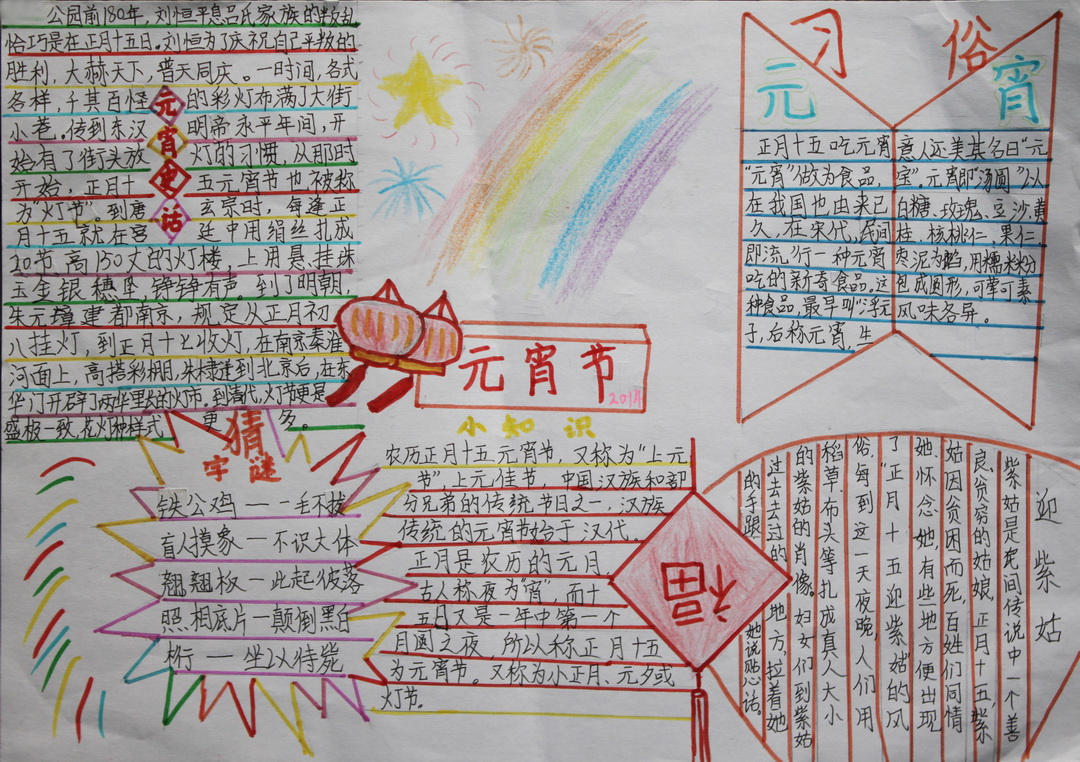 公园前180年，刘恒平息吕氏家族的叛乱
恰巧是在正月十五日。刘恒为了庆祝自己平叛的
胜利，大赫天下，普天同庆。一时间，各式
各样，千其百怪的彩灯布满了大街
小巷。传到东汉明帝永平年间，开
始有了街头放灯的习惯，从那时
开始，正月十五元宵节也被称
为“灯节”。到唐玄宗时，每逢正
月十五就在宫廷中用绢丝扎成
20节，高150丈的灯楼，上用悬挂珠
玉金银穗坠铮铮有声。到了明朝，
朱元璋建都南京，规定从正月初
八挂灯，到正月十七收灯，在南京秦淮
河面上，高搭彩棚，朱棣建到北京后，在东
华门开辟了两华里长的灯市。到清代，灯节更是
盛极一致，花灯种样式更多。
元宵史话
元宵
习俗
正月十五吃元宵
“元宵”做为食品，
在我国也由来已
久，在宋代，民间
即流行一种元宵
吃的新奇食品。这
种食品，最早叫“浮元
子，后称元宵，生
意人还美其名曰“元
宝”。元宵即“汤圆”以
白糖、玫瑰、豆沙、黄
桂、核桃仁、果仁、
枣泥为馅，用糯米粉
包成圆形，可荤可素
风味各异。
元宵节
2014
猜
字谜
铁公鸡一一毛不拔
盲人摸象一不识大体
翘翘板一此起彼落
照相底片一颠倒黑白
桁一坐以待毙
小知识
农历正月十五元宵节，又称为“上元
节”，上元佳节，中国汉族和部
分兄弟的传统节日之一，汉族
传统的元宵节始于汉代。
正月是农历的元月，
古人称夜为“宵”，而十
五日又是一年中第一个
月圆之夜，所以称正月十五
为元宵节。又称为小正月、元夕或
灯节。
福
迎紫姑
紫姑是民间传说中一个善
良、贫穷的姑娘。正月十五，紫
姑因贫困而死，百姓们同情
她、怀念她，有些地方便出现
了“正月十五迎紫姑的风
俗，每到这一天夜晚，人们用
稻草、布头等扎成真人大小
的紫姑的肖像。妇女们到紫姑
过去去过的地方，拉着她
的手跟她说贴心话。